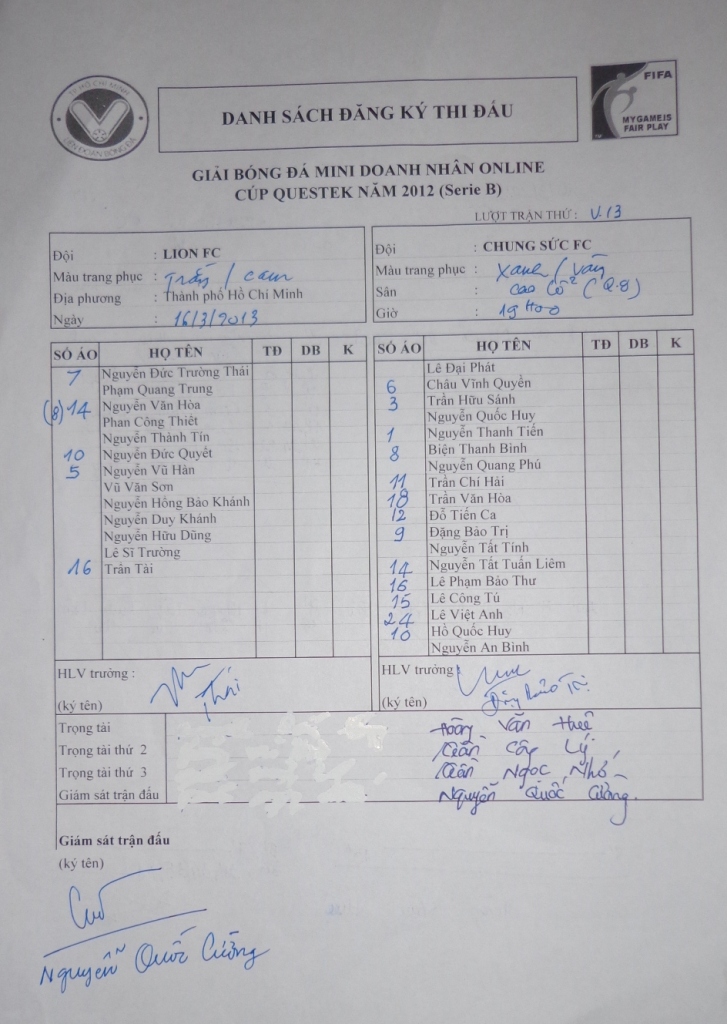 TP HỒ CHÍ MINH
LIÊN ĐOÀN BÓNG ĐÁ
DANH SÁCH ĐĂNG KÝ THI ĐẤU
FIFA
MYGAMEIS
FAIR PLAY
GIẢI BÓNG ĐÁ MINI DOANH NHÂN ONLINE
CÚP QUESTEK NĂM 2012 (Serie B)
LƯỢT TRẬN THỨ : V.13
Đội : LION FC
Màu trang phục : Trắng / cam
Địa phương : Thành phố Hồ Chí Minh
Ngày : 16/3/2013
Đội : CHUNG SỨC FC
Màu trang phục : Xanh / Vàng
Sân : (Q.8)
Giờ : 19H00
SỐ ÁO HỌ TÊN TĐ DB K
7 Nguyễn Đức Trường Thái
Phạm Quang Trung
(8) 14 Nguyễn Văn Hòa
Phan Công Thiết
Nguyễn Thành Tín
10 Nguyễn Đức Quyết
5 Nguyễn Vũ Hân
Vũ Văn Sơn
Nguyễn Hồng Bảo Khánh
Nguyễn Duy Khánh
Nguyễn Hữu Dũng
Lê Sĩ Trường
16 Trần Tài
SỐ ÁO HỌ TÊN TĐ DB K
Lê Đại Phát
6 Châu Vĩnh Quyền
3 Trần Hữu Sánh
Nguyễn Quốc Huy
1 Nguyễn Thanh Tiến
8 Biện Thanh Bình
Nguyễn Quang Phú
11 Trần Chí Hải
18 Trần Văn Hòa
12 Đỗ Tiến Ca
9 Đặng Bảo Trị
Nguyễn Tất Tính
14 Nguyễn Tất Tuấn Liêm
16 Lê Phạm Bảo Thư
15 Lê Công Tủ
24 Lê Việt Anh
10 Hồ Quốc Huy
Nguyễn An Bình
HLV trưởng :
(ký tên)
Thái
HLV trưởng
(ký tên)
Đặng Bảo Trị
Trọng tài Hoàng Văn Thuê
Trọng tài thứ 2 Trần Công Lý
Trọng tài thứ 3 Trần Ngọc Nhớ
Giám sát trận đấu Nguyễn Quốc Cường
Giám sát trận đấu
(ký tên)
Nguyễn Quốc Cường